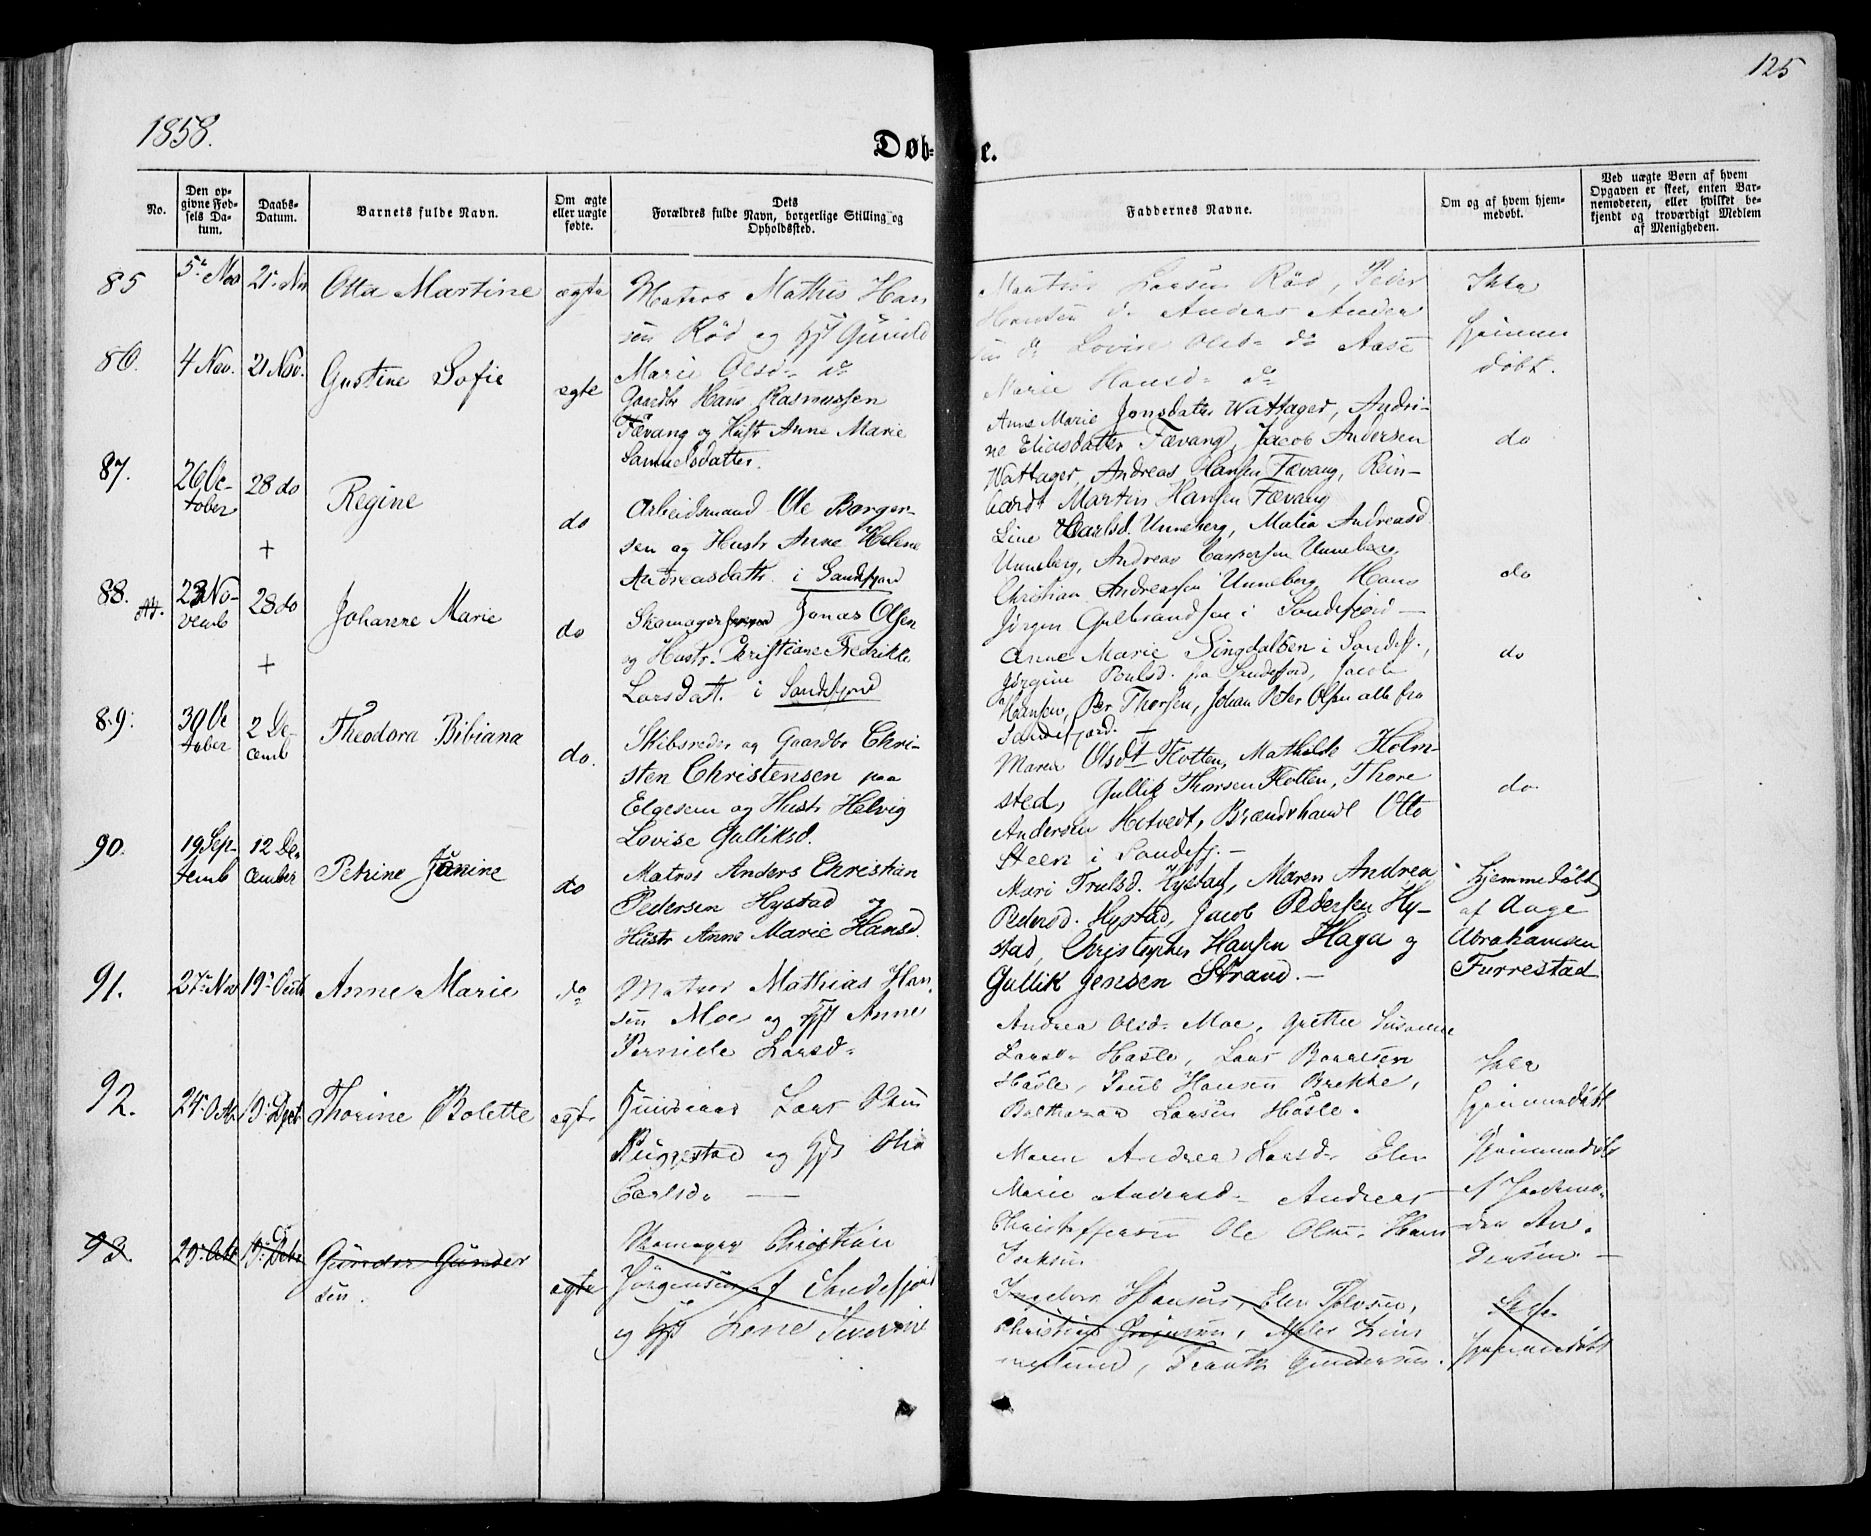 125
1858.
Døb- te.
No.
Den op-
givne Fød-
sels Da-
tum.
Daabs-
Datum.
Barnets fulde Navn.
Om ægte
eller uægte
fødte.
Dets
Forældres fulde Navn, borgerlige Stilling og
Opholdssted.
Faddernes Navne.
Om og af hvem hjem-
medøbt.
Ved uægte Børn af hvem
Opgaven er skeet, enten Bar-
nemoderen, eller hvilket be-
kjendt og troværdigt Medlem
af Menigheden.
85
5 Nov
21 Nov
Otta Martine
ægte
Matros Mathis Han
sen Rød og Gunild
Marie Olsd
Larsen Rød, Peder
Hansen do Anders Ander
sen do Lovise Olsd do Aase
Marie Hansd do
Ikke
hjemme
døbt.
86.
4 Nov.
21 Nov.
Gustine Sofie
egte
Gaardbr Hans Rasmussen
Fævang og Hustr Anne Marie
Samuelsdatter.
Anne Marie Jonsdatter Wattager, Andri-
ne Eliasdatter Fævang, Jacob Andersen
Wattager, Andreas Hansen Fævang, Rein-
hardt Martin Hansen Fævang
do
87.
26 Oc-
tober
28 do
+
Regine
do
Arbeidsmand Ole Borger-
sen og Hustr Anne Helene
Andreasdattr. i Sandefjord
Line Carlsd. Unneberg, Malia Andreasd.
Unneberg, Andreas Caspersen Unneberg,
Christian Andreassen Unneberg, Hans
Jørgen Gulbrandsen i Sandefjord —
do
88.
23 No-
vemb
28 do
+
Johanne Marie
do
Skomager Jonas Olsen
og Hustr. Christiane Fredrikke
Larsdatt. i Sandefjord
Anne Marie Lingdalsen i Sandefj.,
Jørgine Poulsd. fra Sandefjord, Jacob
Hansen, Per Thorsen, Johan Peter Olsen alle fra
Sandefjord. —
do
89.
30 Oc
tober
2 De-
cemb
Theodora Bibiana
do.
Skibsreder og Gaardbr Chri-
sten Christensen paa
Elgesem og Hustr Helvig
Lovise Gulliksd.
Maren Olsdt Flotten, Mathilde Holm-
sted, Gullik Thorsen Flotten, Thore
Andersen Hotvedt, Brændvhandl Otto
Steen i Sandefj. —
do.
90.
19 Sep-
temb
12 De-
cember
Petrine Janine
do
Matros Anders Christian
Pedersen Hystad og
Hustr Anne Marie Hansd.
Mari Trulsd. Hystad, Maren Andrea
Pedersd. Hystad, Jacob Pedersen Hy-
stad, Christopher Hansen Haga og
Gullik Jensen Strand. —
Hjemmedøbt
af Aage
Abrahamsen
Furrestad
91.
27 Nov
19
Anne Marie
do
Matros Mathias Han-
sen Moe og Anne
Pernille Larsd
Andrea Olsd Moe, Grethe Susanne
Larsd Hasle, Lars Baalsen
Hasle, Poul Hansen Brekke,
Balthazar Larsen Hasle.
Ikke
hjemmedøbt
92.
24 Octb
19 Dcb
Thorine Bolette
egte
Huusmand Lars Olsen
og Olia
Carlsd —
Maren Andrea Larsd Elen
Marie Andersd Andreas
Christoffersen Ole Olsen Hans
Isaksen
Hjemmedøbt
af
den An-
dersen —
93.
20 Octb
19 Decb
Gunder Gunder
sen.
ægte
Skomager Christian
Jørgensen af Sandefjord
og Lene Severine
Ingeborg Hansen, Elen
Christine Jørgensen,
Gundersen.
Ikke
hjemmedøbt